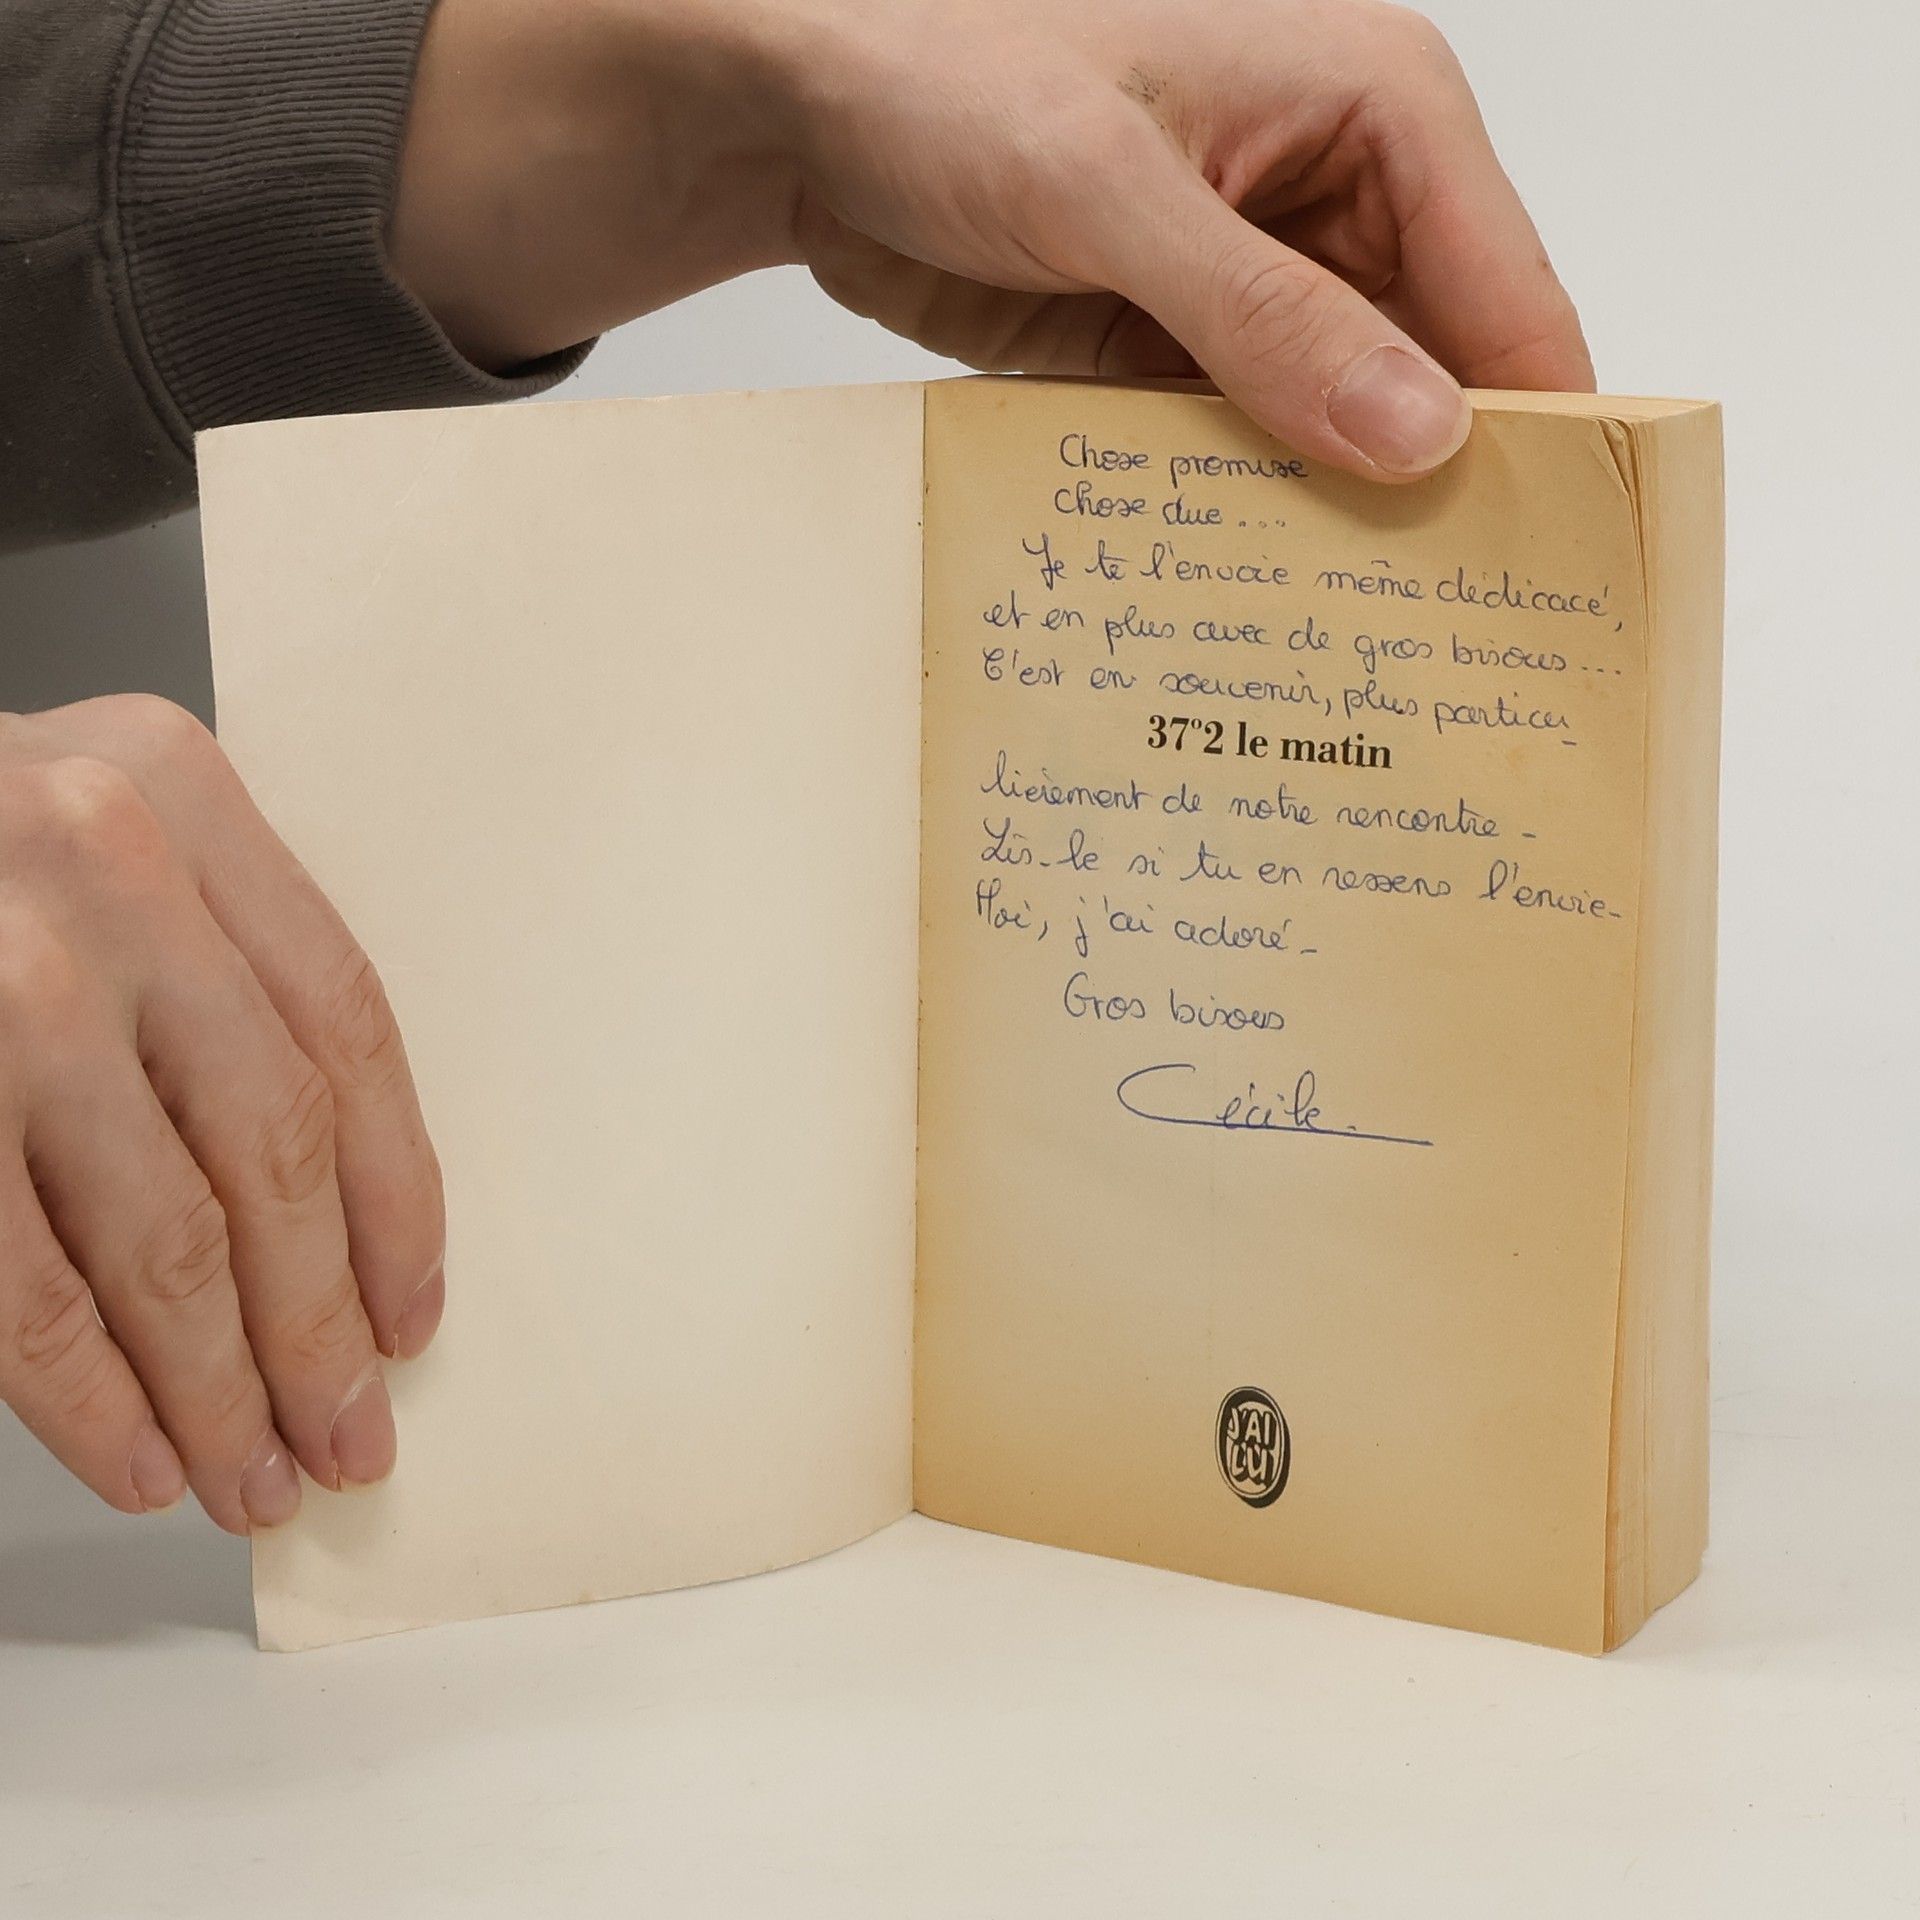 Chose promise
Chose due ...
Je te l'envoie même dédicacé,
et en plus avec de gros bisous ...
C'est en souvenir, plus particu_
37°2 le matin
lièrement de notre rencontre -
Lis-le si tu en ressens l'envie-
Moi, j'ai adoré-
Gros bisous
Cécile.
J'AI
LU